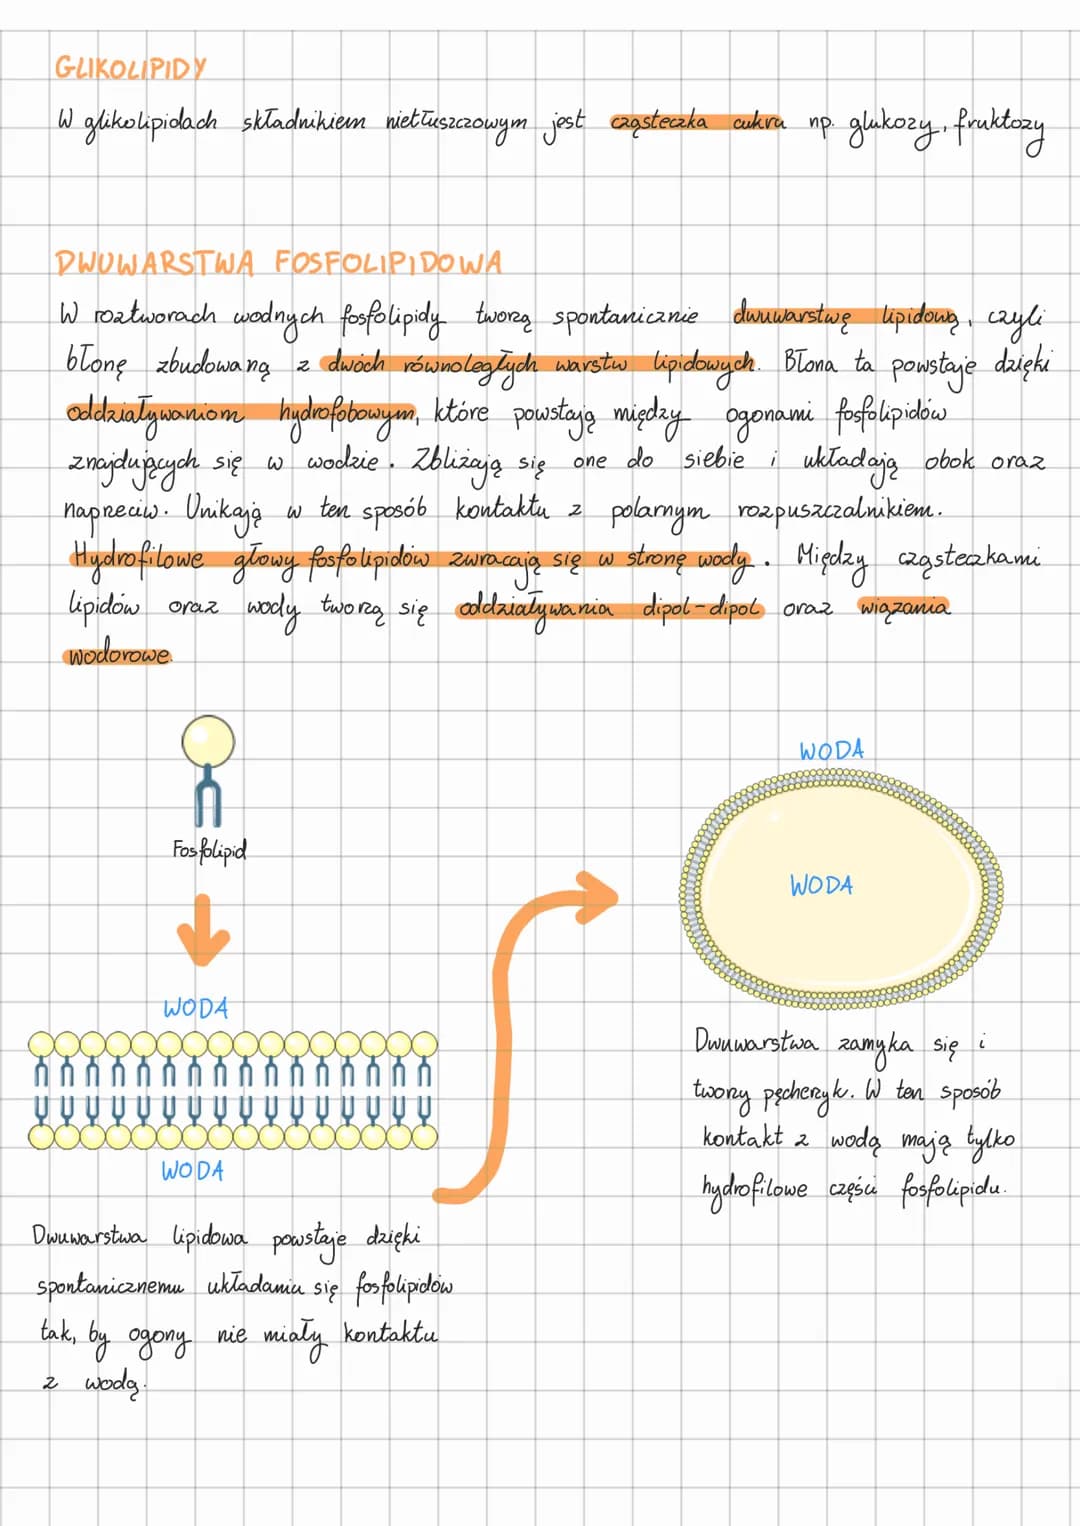 GLIKOLIPIDY
W glikolipidach składnikiem nietłuszczowym jest cząsteczka cukru np. glukozy, fruktozy
DWUWARSTWA FOSFOLIPIDOWA
W roztworach wodnych fosfolipidy tworzą spontanicznie dwuwarstwę lipidową, czyli
błonę zbudowaną z dwóch równoległych warstw lipidowych. Błona ta powstaje dzięki
oddziaływaniom hydrofobowym, które powstają między ogonami fosfolipidów
znajdujących się w wodzie. Zbliżają się one do siebie i układają obok oraz
napreciw. Unikają w ten sposób kontaktu z polarnym rozpuszczalnikiem.
Hydrofilowe głowy fosfolipidów zwracają się w stronę wody. Między cząsteczkami
lipidów oraz wody tworzą się oddziaływania dipol-dipol oraz wiązania
wodorowe.
Fosfolipid
WODA
WODA
Dwuwarstwa lipidowa powstaje dzięki
spontanicznemu układaniu się fosfolipidów
tak, by ogony nie miały kontaktu
z wodą.
WODA
WODA
Dwuwarstwa zamyka się i
tworzy pęcherzyk. W ten sposób
kontakt z wodą mają tylko
hydrofilowe części fosfolipidu.